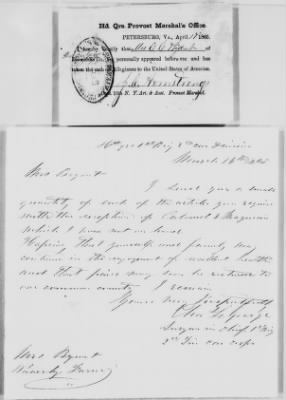 Hd Qrs. Provost Marshal's Office
PETERSBURG, Va., April 1865.
I hereby certify that Mrs
personally appeared before me and has
taken the oath of allegiance to the United States of America.
N. Y. Art. & Asst. Provost Marshal.
March 16th 1865
Mrs Bryant
I send you a small
quantity of each of the article you require
with the exception of Calomel & Magnesia
which I have not on hand
Hoping that yourself and family may
continue in the enjoyment of excellent health
and that peace may soon be restored to
our common country I remain
Yours very respectfully
Surgeon in Chief 1st Brig
2nd Div
Mrs Bryant
Waverly Farm